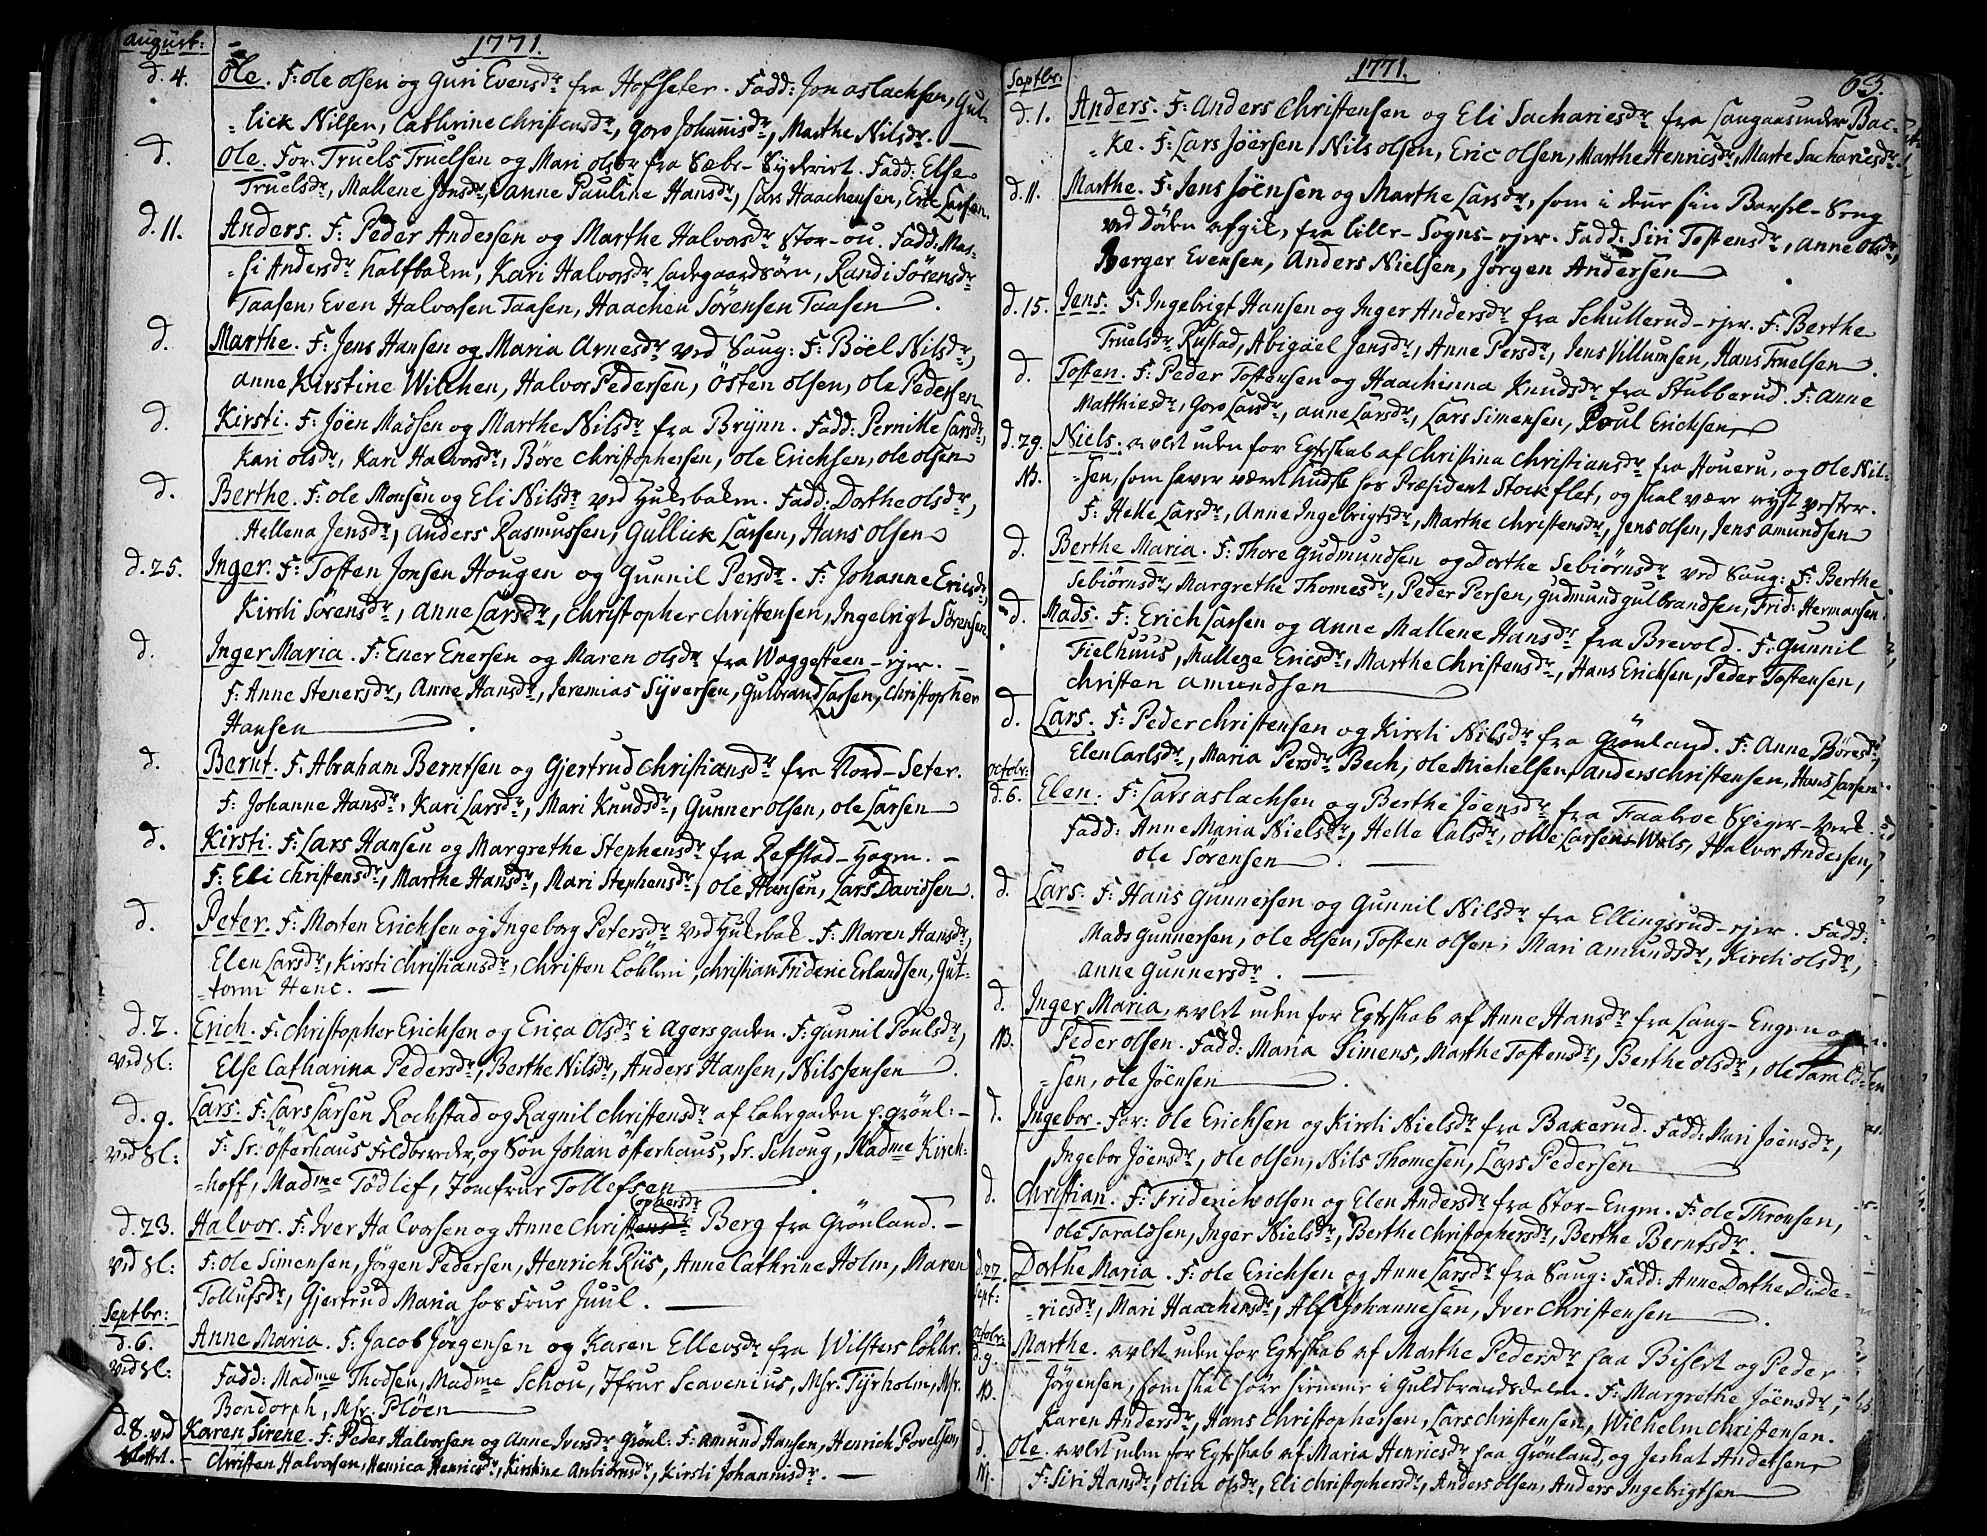 august: 1771.
d. 4. Ole. F: Ole Olsen og Guri Evensdr fra Hofseter. Fadd: Jon Aslachsen, Gul-
-lick Nilsen, Cathrine Christensdr, Goro Johannisdr, Marthe Nilsdr. —
d. Ole. For: Truels Truelsen og Mari Olsdr fra Sæbe- Fadd: Else
Truelsdr, Mallene Jonsdr, Anne Pauline Hansdr, Lars Haachensen, Eric Larsen.
d. 11. Anders. F: Peder Andersen og Marthe Halvorsdr Stor-ou. Fadd: Mas-
-si Andersdr Kalfbakm, Kari Halvorsdr Ladegaardsøen, Randi Sörensdr
Taasen, Even Halvorsen Taasen, Haachen Sörensen Taasen
d. Marthe. F: Jens Hansen og Maria Arnesdr ved Saug: F: Böel Nilsdr,
Anne Kirstine Wilchen, Halvor Pedersen, Östen Olsen, Ole Pedersen
d. Kirsti. F: Jöen Madsen og Marthe Nilsdr fra Brÿnn. Fadd: Pernille Larsdr,
Kari Olsdr, Kari Halvorsdr, Böre Christophersen, Ole Erichsen, Ole Olsen
d. Berthe. F: Ole Monsen og Eli Nilsdr ved Fadd: Dorthe Olsdr,
Hellena Jensdr, Anders Rasmussen, Gullick Larsen, Hans Olsen
d. 25. Inger. F: Tosten Jonsen Hougen og Gunnil Persdr. F: Johanne Ericsdr,
Kirsti Sörensdr, Anne Larsdr, Christopher Christensen, Ingebrigt Sörensen
d. Inger Maria. F: Ener Enersen og Maren Olsdr fra Waggesteen-ejer. —
F: Anne Stenersdr, Anne Hansdr, Jeremias Syversen, Gulbrand Larsen, Christopher
Hansen
d. Bernt. F: Abraham Berntsen og Gjertrud Christiansdr fra Nord-Seter.
F: Johanne Hansdr, Kari Larsdr, Mari Knudsdr, Gunner Olsen, Ole Larsen
d. Kirsti. F: Lars Hansen og Margrethe Stephensdr fra Refstad-Hagen. —
F: Eli Christensdr, Marthe Hansdr, Mari Stephensdr, Ole Hansen, Lars Davidsen.
d. Peter. F: Morten Erichsen og Ingeborg Petersdr ved F: Maren Hansdr,
Elen Larsdr, Kirsti Christiansdr, Christen Christian Frideric Erlandsen, Gut-
-torm Henc. —
d. 2. Erich. F: Christopher Erichsen og Erica Olsdr i Agersgaden. F: Gunnil Poulsdr,
ved Sl: Else Catharina Pedersdr, Berthe Nilsdr, Anders Hansen, Nils Jensen
d. 9. Lars. F: Lars Larsen Rochstad og Ragnil Christensdr af p. Grönl: —
ved Sl: F: Sr. Österhaus og Sön Johan Österhaus, Sr. Schoug, Madme Kirch-
-hoff, Madme Tödlef, Jomfrur Tollefsen
d. 23. Halvor. F: Iver Halvorsen og Anne Christophersdr Berg fra Grönland. —
ved Sl: F: Ole Simensen, Jörgen Pedersen, Henrich Riis, Anne Cathrine Holm, Maren
Tollufsdr, Gjertrud Maria hos Frur Juul. —
Septbr:
d. 6. Anne Maria. F: Jacob Jörgensen og Karen Ellevsdr fra Wilsters
ved Sl: Fadd: Madme Thodsen, Madme Schou, Jfrur Scavenius, Msr. Tyrholm, Msr.
Bondorph, Msr. Plöen
d. 8. ved Karen Sirene. F: Peder Halvorsen og Anne Iversdr Grönl: F: Amund Hansen, Henrich Povelsen,
Slottet. - Christen Halvorsen, Henrica Henricsdr, Kirstine Anbiörnsdr, Kirsti Johannisdr. —
Septbr: 1771. 63.
d. 1. Anders. F: Anders Christensen og Eli Sachariesdr fra Langaas under Bac-
-ke. F: Lars Jöersen, Nils Olsen, Eric Olsen, Marthe Henricsdr, Marte Sachariesdr.
d. 11. Marthe. F: Jens Jöensen og Marthe Larsdr, som i denne sin Barsel-Seng
ved Döden afgik, fra Lille-Sogns-ejer. Fadd: Siri Tostensdr, Anne Olsdr,
Berger Evensen, Anders Nielsen, Jörgen Andersen
d. 15. Jens. F: Ingebrigt Hansen og Inger Andersdr fra Schullerud-ejer. F: Berthe
Truelsdr Rustad, Abigael Jensdr, Anne Persdr, Jens Villumsen, Hans Truelsen.
d. Tosten. F: Peder Tostensen og Haachinna Knudsdr fra Stubberud. F: Anne
Matthiesdr, Goro Larsdr, Anne Larsdr, Lars Simensen, Poul Erichsen
d. 29. Niels. avlet uden for Egteskab af Christina Christiansdr fra Houeru, og Ole Nil-
NB. -sen, som haver været hos Præsident Stockflet, og skal være
F: Helle Larsdr, Anne Ingebrigtsdr, Marthe Christensdr, Jens Olsen, Jens Amundsen
d. Berthe Maria. F: Thore Gudmundsen og Dorthe Sebiörnsdr ved Saug: F: Berthe
Sebiörnsdr, Margrethe Thomesdr, Peder Persen, Gudmund Gulbrandsen, Frid: Hermansen
d. Mads. F: Erich Larsen og Anne Mallene Hansdr fra Brevold. F: Gunnil
Fielhuus, Mallene Ericsdr, Marthe Christensdr, Hans Erichsen, Peder Tostensen,
Christen Amundsen
d. Lars. F: Peder Christensen og Kirsti Nilsdr fra Grönland. F: Anne Böresdr,
Elen Carlsdr, Maria Persdr Bech, Ole Michelsen, Anders Christensen, Hans Larsen
Octobr:
d. 6. Elen. F: Lars Aslachsen og Berthe Jöensdr fra Taaboe Spiger-Verk.
Fadd: Anne Maria Nielsdr, Helle Calsdr, Olle Larsen Wols, Halvor Andersen,
Ole Sörensen
d. Lars. F: Hans Gunnersen og Gunnil Nilsdr fra Ellingsrud-ejer. Fadd:
Mads Gunnersen, Ole Olsen, Tosten Olsen, Mari Amundsdr, Kirsti Olsdr,
Anne Gunnersdr. —
d. Inger Maria, avlet uden for Egteskab af Anne Hansdr fra Lang-Engen og
NB. Peder Olsen. Fadd: Maria Simens, Marthe Tostensdr, Berthe Olsdr, Ole Tarald-
-sen, Ole Jöensen
d. Ingebor. For: Ole Erichsen og Kirsti Nielsdr fra Bakerud. Fadd: Mari Jöensdr,
Ingebor Jöensdr, Ole Olsen, Nils Thomesen, Lars Pedersen
d. Christian. F: Friderich Olsen og Elen Andersdr fra Stor-Engen. F: Ole Thronsen,
Ole Taraldsen, Inger Nielsdr, Berthe Christophersdr, Berthe Berntsdr. —
d. 27. Dorthe Maria. F: Ole Erichsen og Anne Larsdr fra Saug: Fadd: Anne Dorthe Dide-
Sept: -ricsdr, Mari Haachensdr, Alf Johannesen, Iver Christensen
Octobr:
d. 9. Marthe. avlet uden for Egteskab af Marthe Pedersdr paa Bislet og Peder
NB. Jörgensen, som skal höre hiemme i Guldbrandsdalen. F: Margrethe Jöensdr,
Karen Andersdr, Hans Christophersen, Lars Christensen, Wilhelm Christensen.
d. Ole. avlet uden for Egteskab af Maria Henricsdr paa Grönland, og Andersen
N. F: Siri Hansdr, Olia Olsdr, Eli Christophersdr, Anders Olsen, Anders Ingebrigtsen